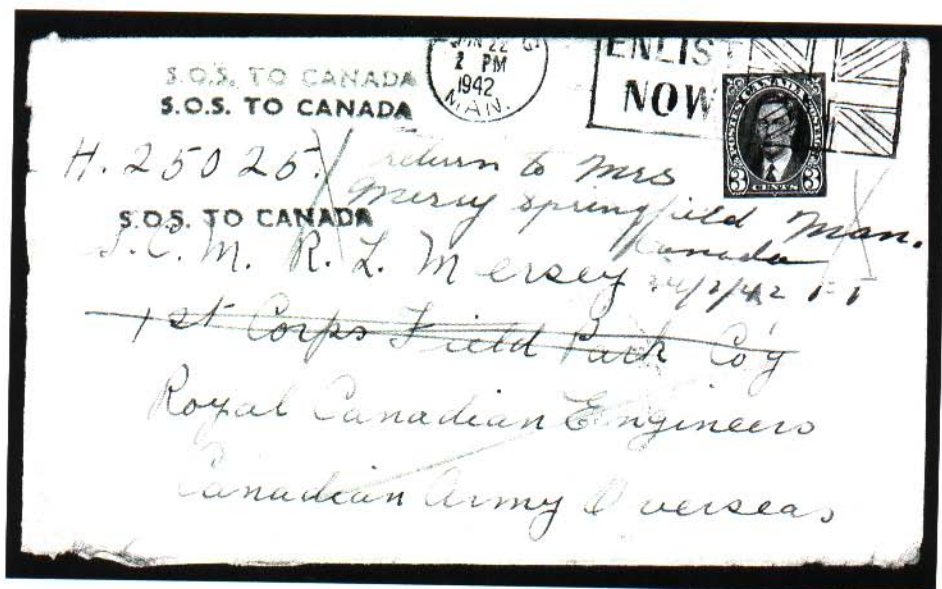 S.O.S. TO CANADA
S.O.S. TO CANADA
JAN 22
2 PM
1942
MAN.
ENLIST
NOW
POSTES CANADA POSTAGE
3 CENTS 3
H. 25025.
return to Mrs
Mersey Springfield Man.
Canada
S.O.S. TO CANADA
S.C.M. R. L. Mersey
24/2/42
1st Corps Field Park Co'y
Royal Canadian Engineers
Canadian Army Overseas